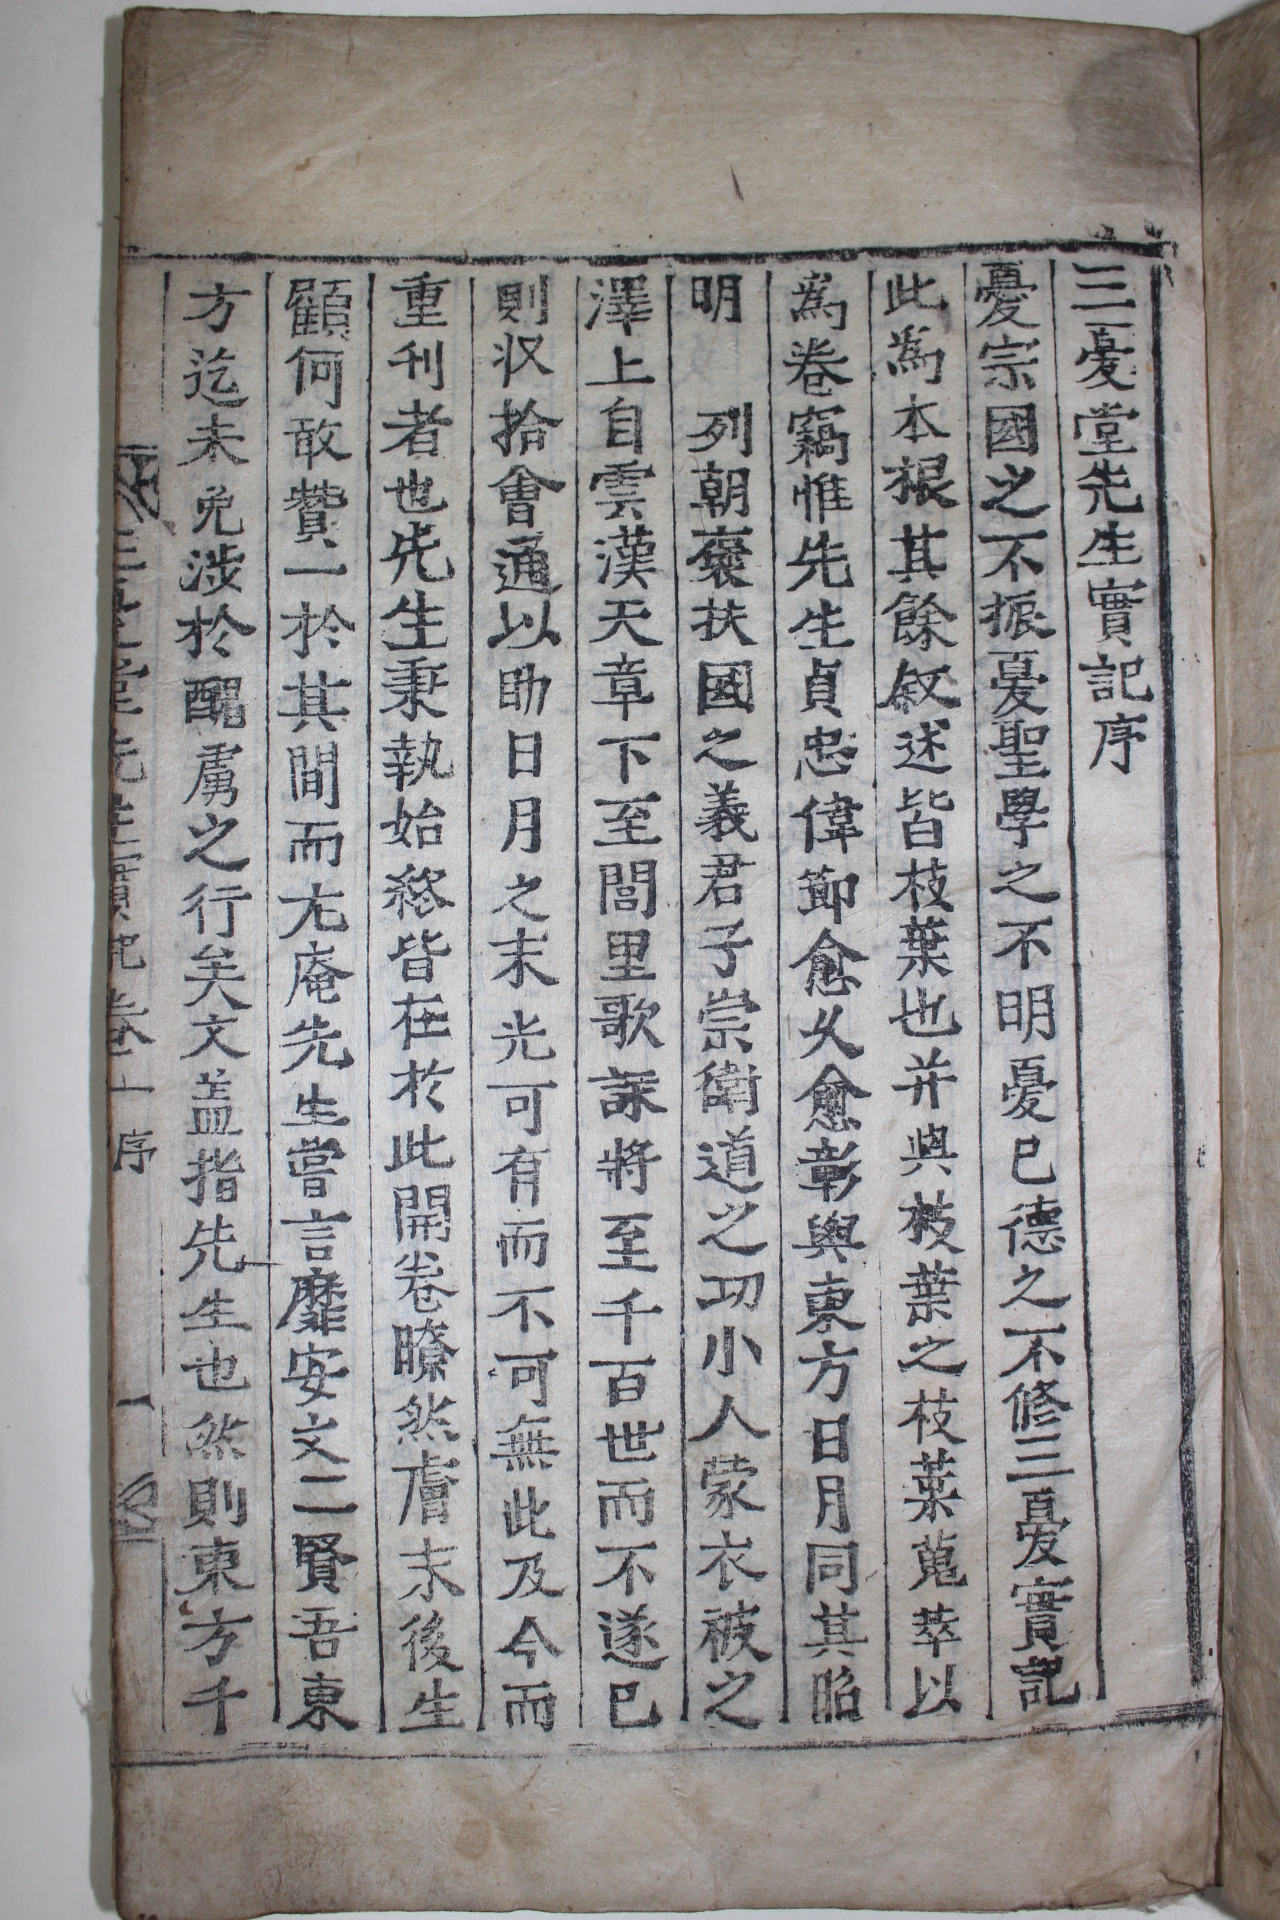 三憂堂先生實記序
憂宗國之不振憂聖學之不明憂已德之不修三憂實記
此為本根其餘叙述皆枝葉也并與枝葉之枝葉蒐萃以
為卷竊惟先生貞忠偉節愈久愈彰與東方日月同其昭
明　列朝褒扶國之義君子崇衛道之功小人蒙衣被之
澤上自雲漢天章下至閭里歌謠將至千百世而不遂已
則収拾會通以助日月之末光可有而不可無此及今而
重刊者也先生秉執始終皆在於此開卷瞭然膚末後生
顧何敢贊一於其間而尤庵先生嘗言靡安文二賢吾東
方迄未免涉於醜虜之行矣文盖指先生也然則東方千
三憂堂先生實記卷上　序　一